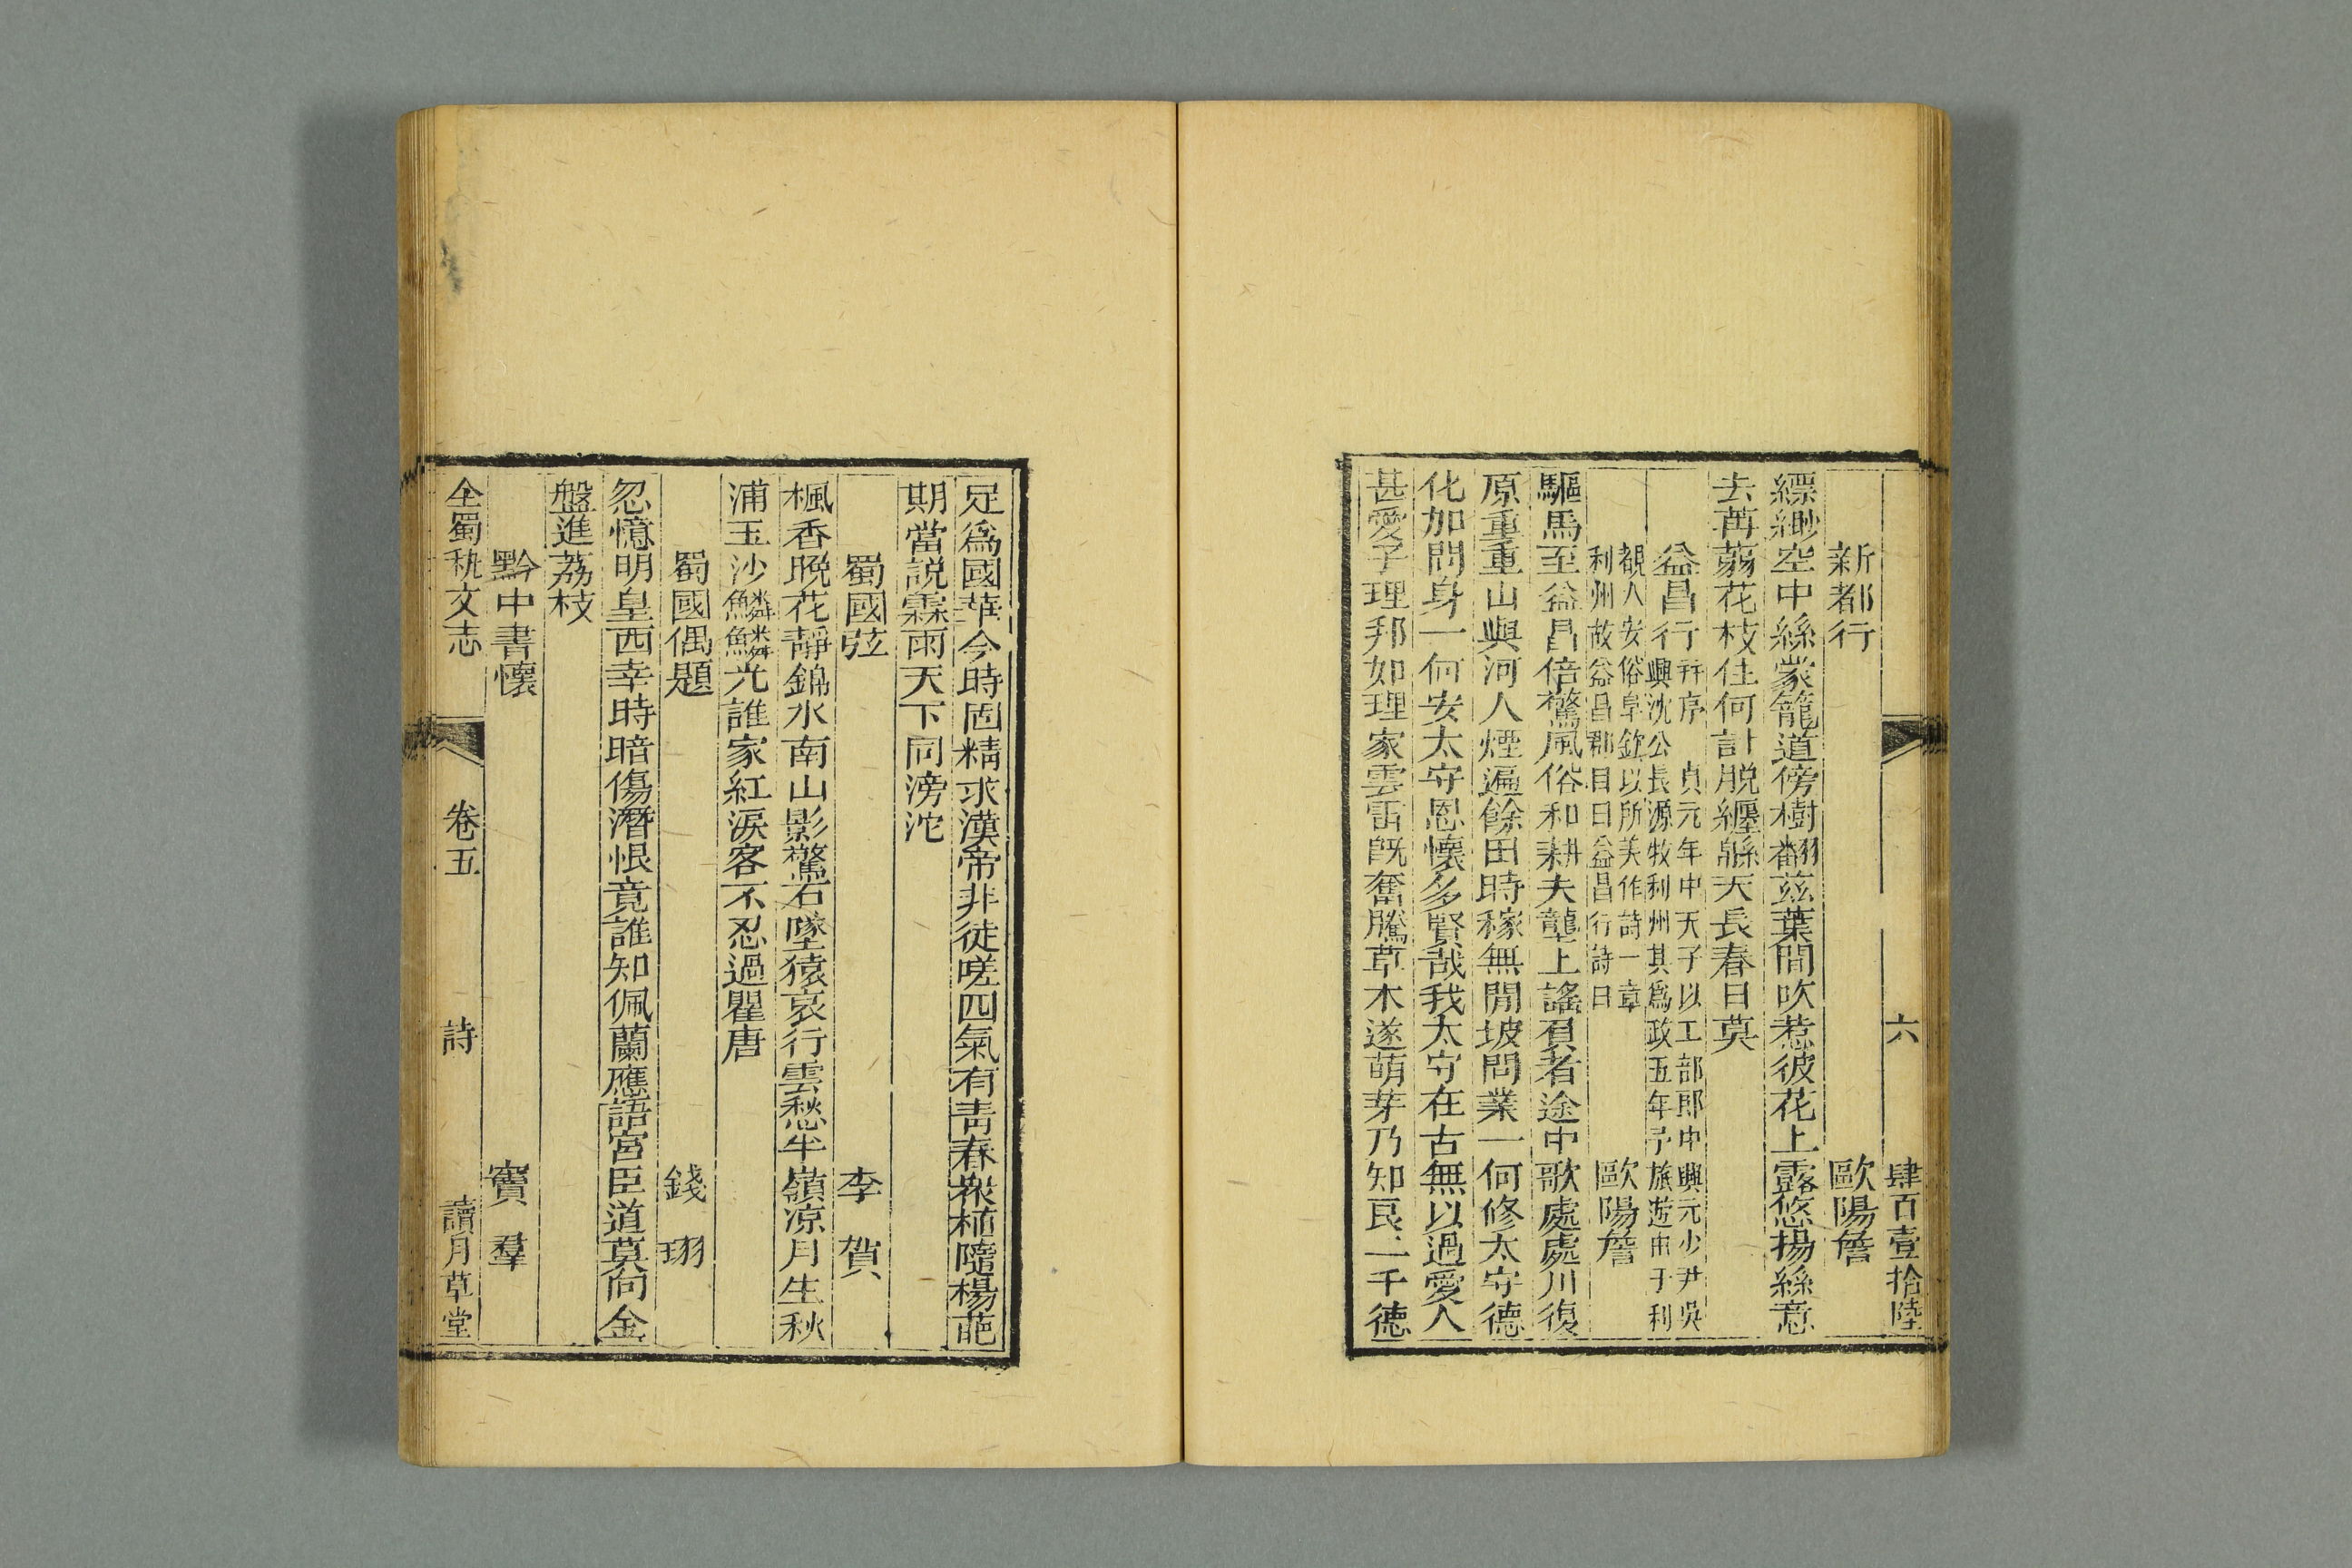 六　肆百壹拾陸
新都行　歐陽詹
縹緲空中絲蒙籠道傍樹翻茲葉間吹惹彼花上露悠揚絲意
去苒蒻花枝住何計脫纏緜天長春日莫
益昌行并序　貞元年中天子以工部郎中興元少尹吳
興沈公長源牧利州其爲政五年予旅遊由于利
覩人安俗阜欽以所美作詩一章
利州故益昌郡目曰益昌行詩曰　歐陽詹
驅馬至益昌倍驚風俗和耕夫壟上謠負者途中歌處處川復
原重重山與河人煙遍餘田時稼無閒坡問業一何修太守德
化加問身一何安太守恩懷多賢哉我太守在古無以過愛人
甚愛子理邦如理家雲雷旣奮騰草木遂萌芽乃知良二千德
足爲國華今時固精求漢帝非徒嗟四氣有青春衆植隨楊葩
期當說霖雨天下同滂沱
蜀國弦　李賀
楓香晚花靜錦水南山影驚石墜猿哀行雲愁半嶺凉月生秋
浦玉沙鱗鱗光誰家紅淚客不忍過瞿唐
蜀國偶題　錢珝
忽憶明皇西幸時暗傷潛恨竟誰知佩蘭應語宮臣道莫向金
盤進荔枝
黔中書懷　竇羣
全蜀秇文志　卷五　詩　讀月草堂